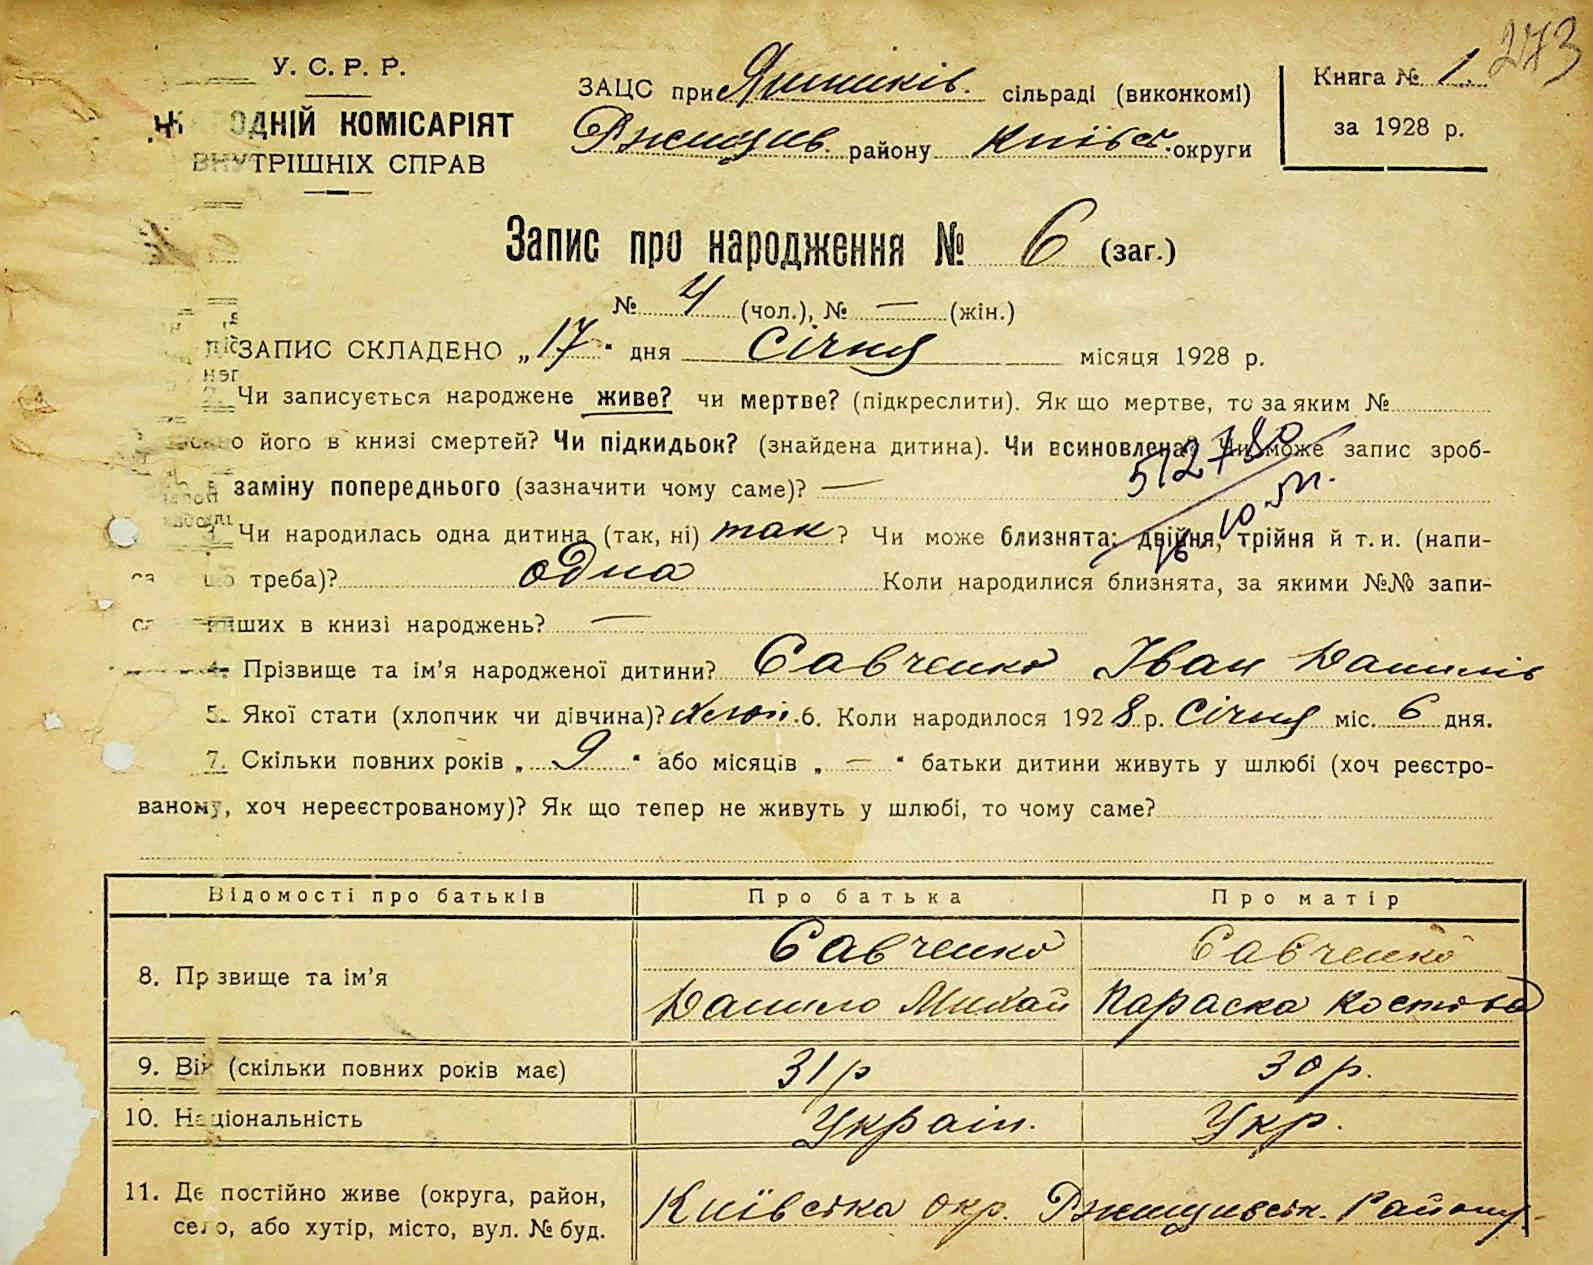 273
У. С. Р. Р.
НАРОДНІЙ КОМІСАРІЯТ
ВНУТРІШНІХ СПРАВ
ЗАЦС при Яшників. сільраді (виконкомі)
Ржищив. району Київськ. округи
Книга № 1.
за 1928 р.
Запис про народження № 6 (заг.)
№ 4 (чол.), № — (жін.)
ЗАПИС СКЛАДЕНО „ 17 " дня Січня місяця 1928 р.
2. Чи записується народжене живе? чи мертве? (підкреслити). Як що мертве, то за яким №
його в книзі смертей? Чи підкидьок? (знайдена дитина). Чи всиновлена? Чи може запис зроб-
заміну попереднього (зазначити чому саме)? —
512780
3. Чи народилась одна дитина (так, ні) так ? Чи може близнята: двійня, трійня й т. и. (напи-
треба)? одна Коли народилися близнята, за якими №№ запи-
інших в книзі народжень? —
4. Прізвище та ім'я народженої дитини? Савченко Іван Данилів
5. Якої стати (хлопчик чи дівчина)? Хлоп. 6. Коли народилося 1928 р. Січня міс. 6 дня.
7. Скільки повних років „ 9 " або місяців „ — " батьки дитини живуть у шлюбі (хоч реєстро-
ваному, хоч нереєстрованому)? Як що тепер не живуть у шлюбі, то чому саме?
Відомості про батьків Про батька Про матір
8. Прізвище та ім'я Савченко Данило Михай Савченко Параска Костьова
9. Вік (скільки повних років має) 31 р 30 р.
10. Національність Україн. Укр.
11. Де постійно живе (округа, район,
село, або хутір, місто, вул. № буд. Київська окр. Ржищивськ. Району